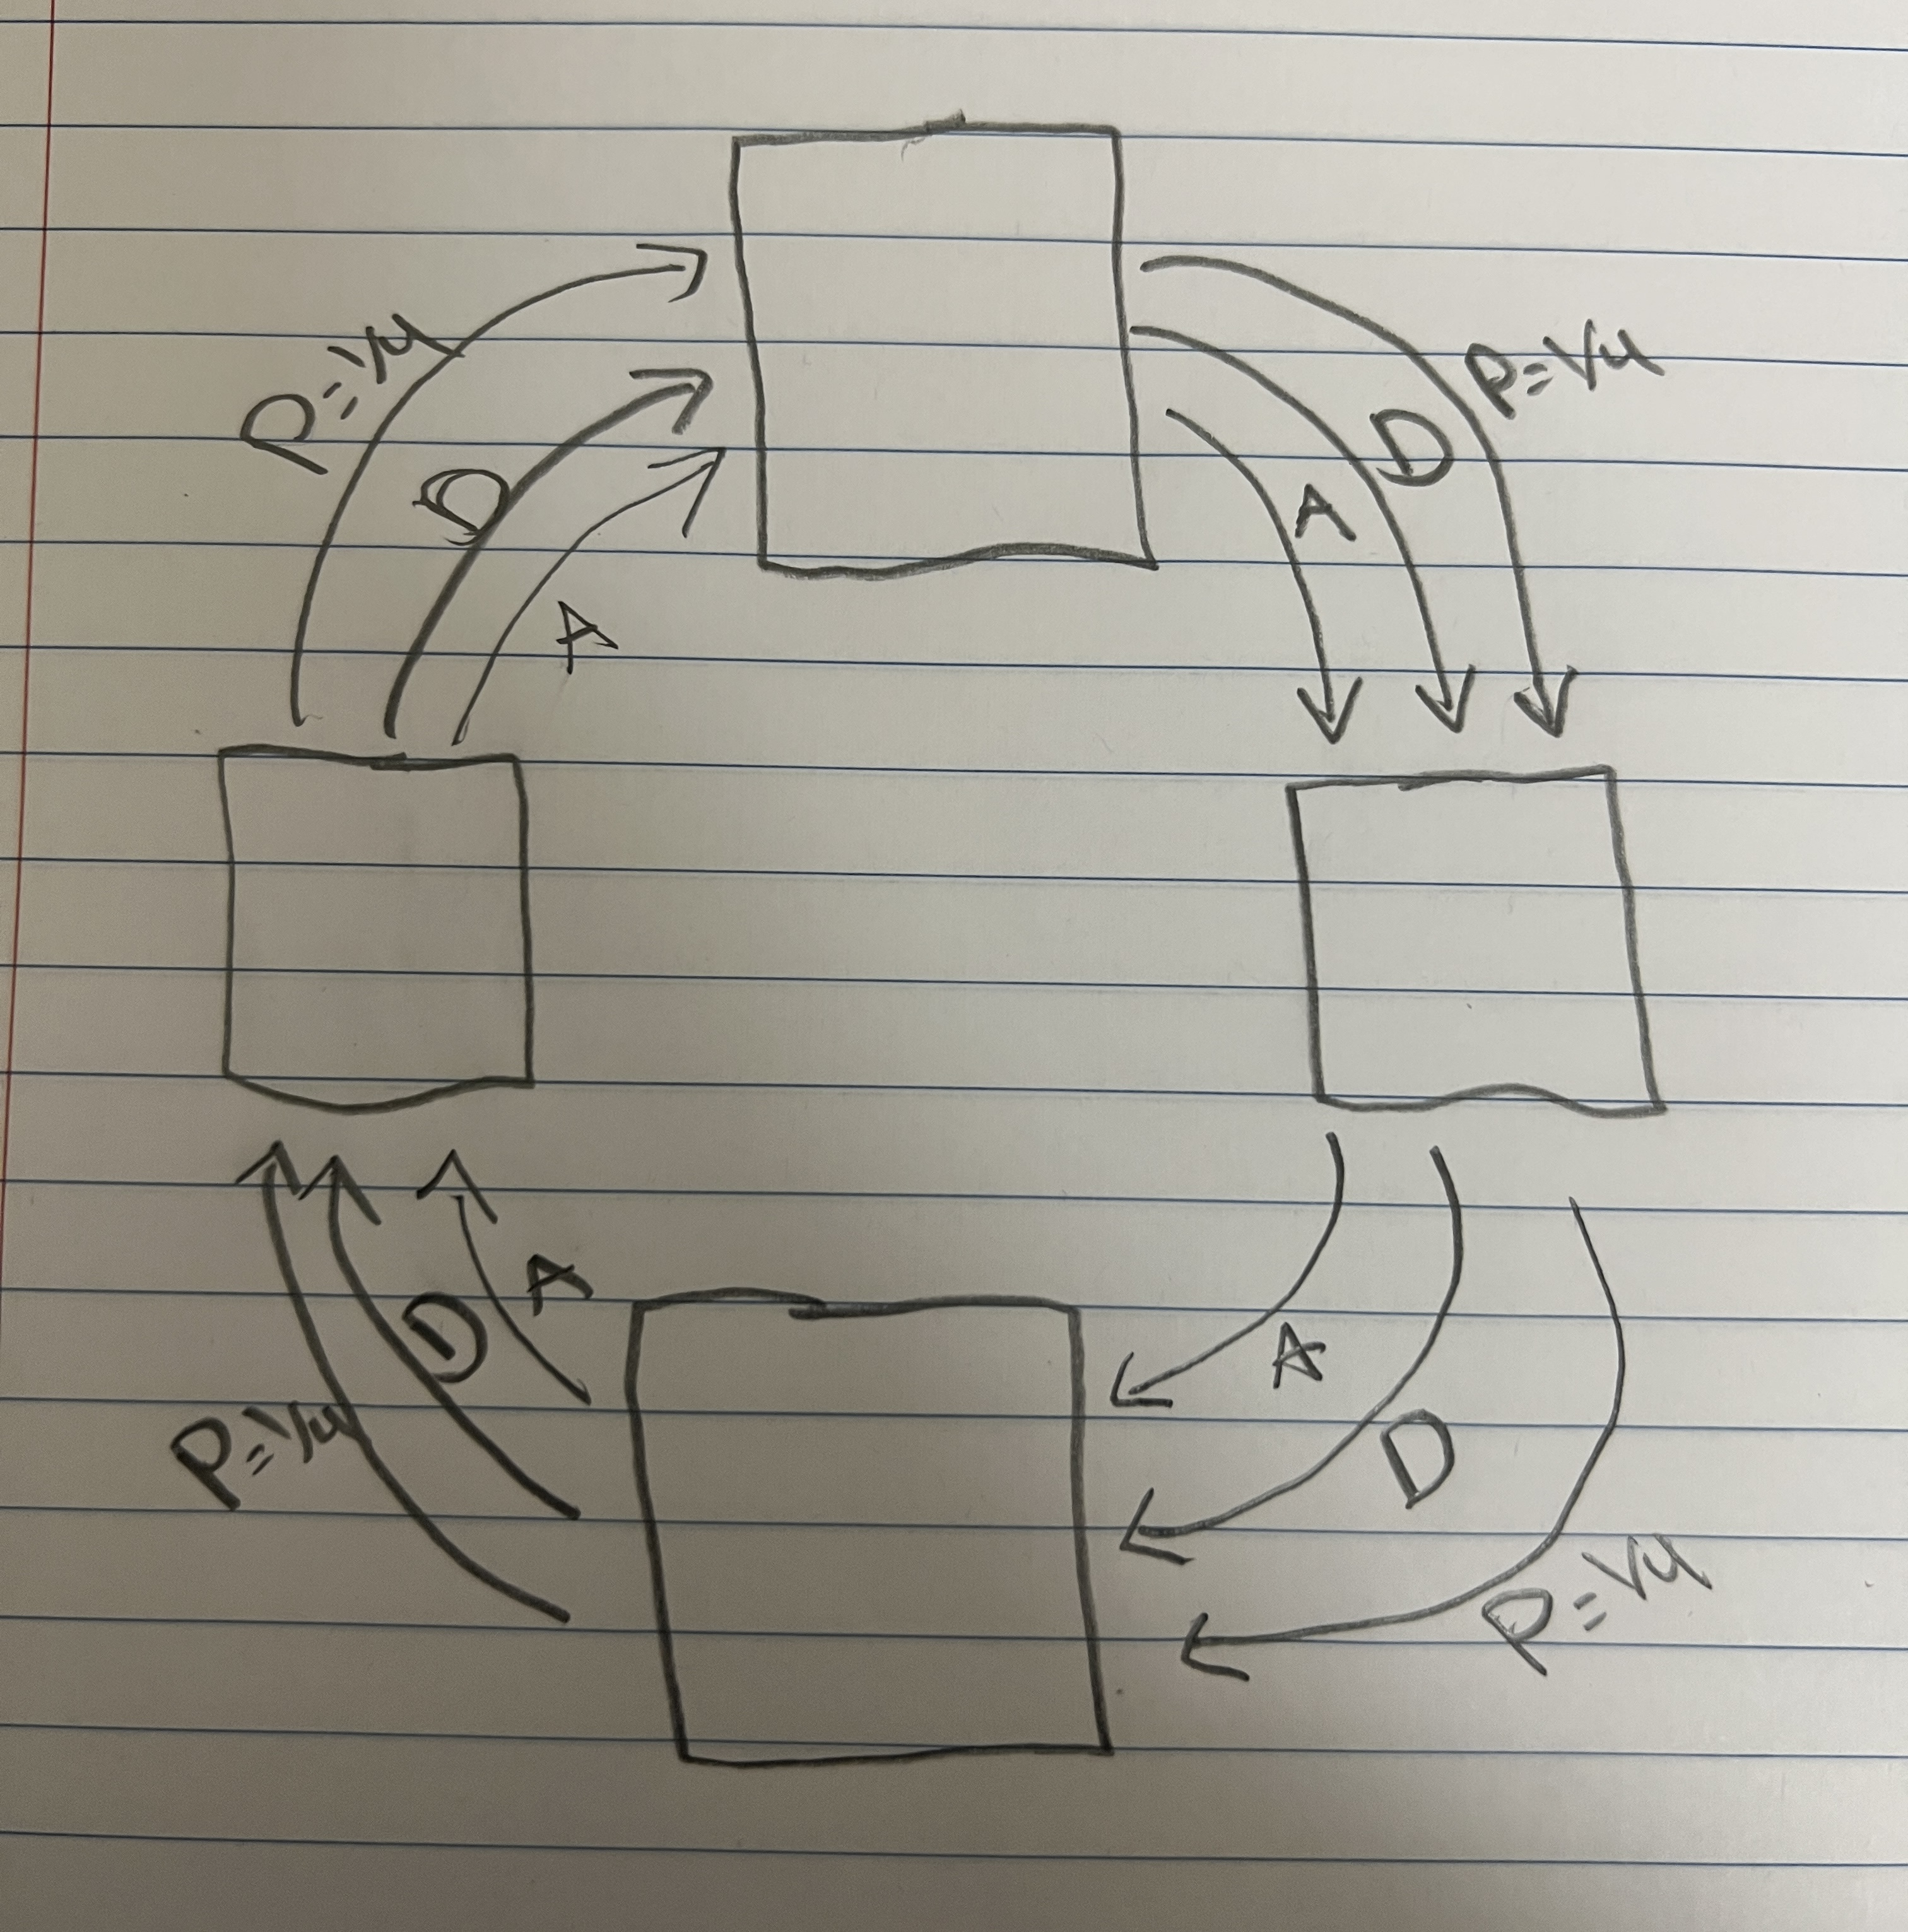 P=1/4
D
A
P=1/4
D
A
A
D
P=1/4
A
D
P=1/4